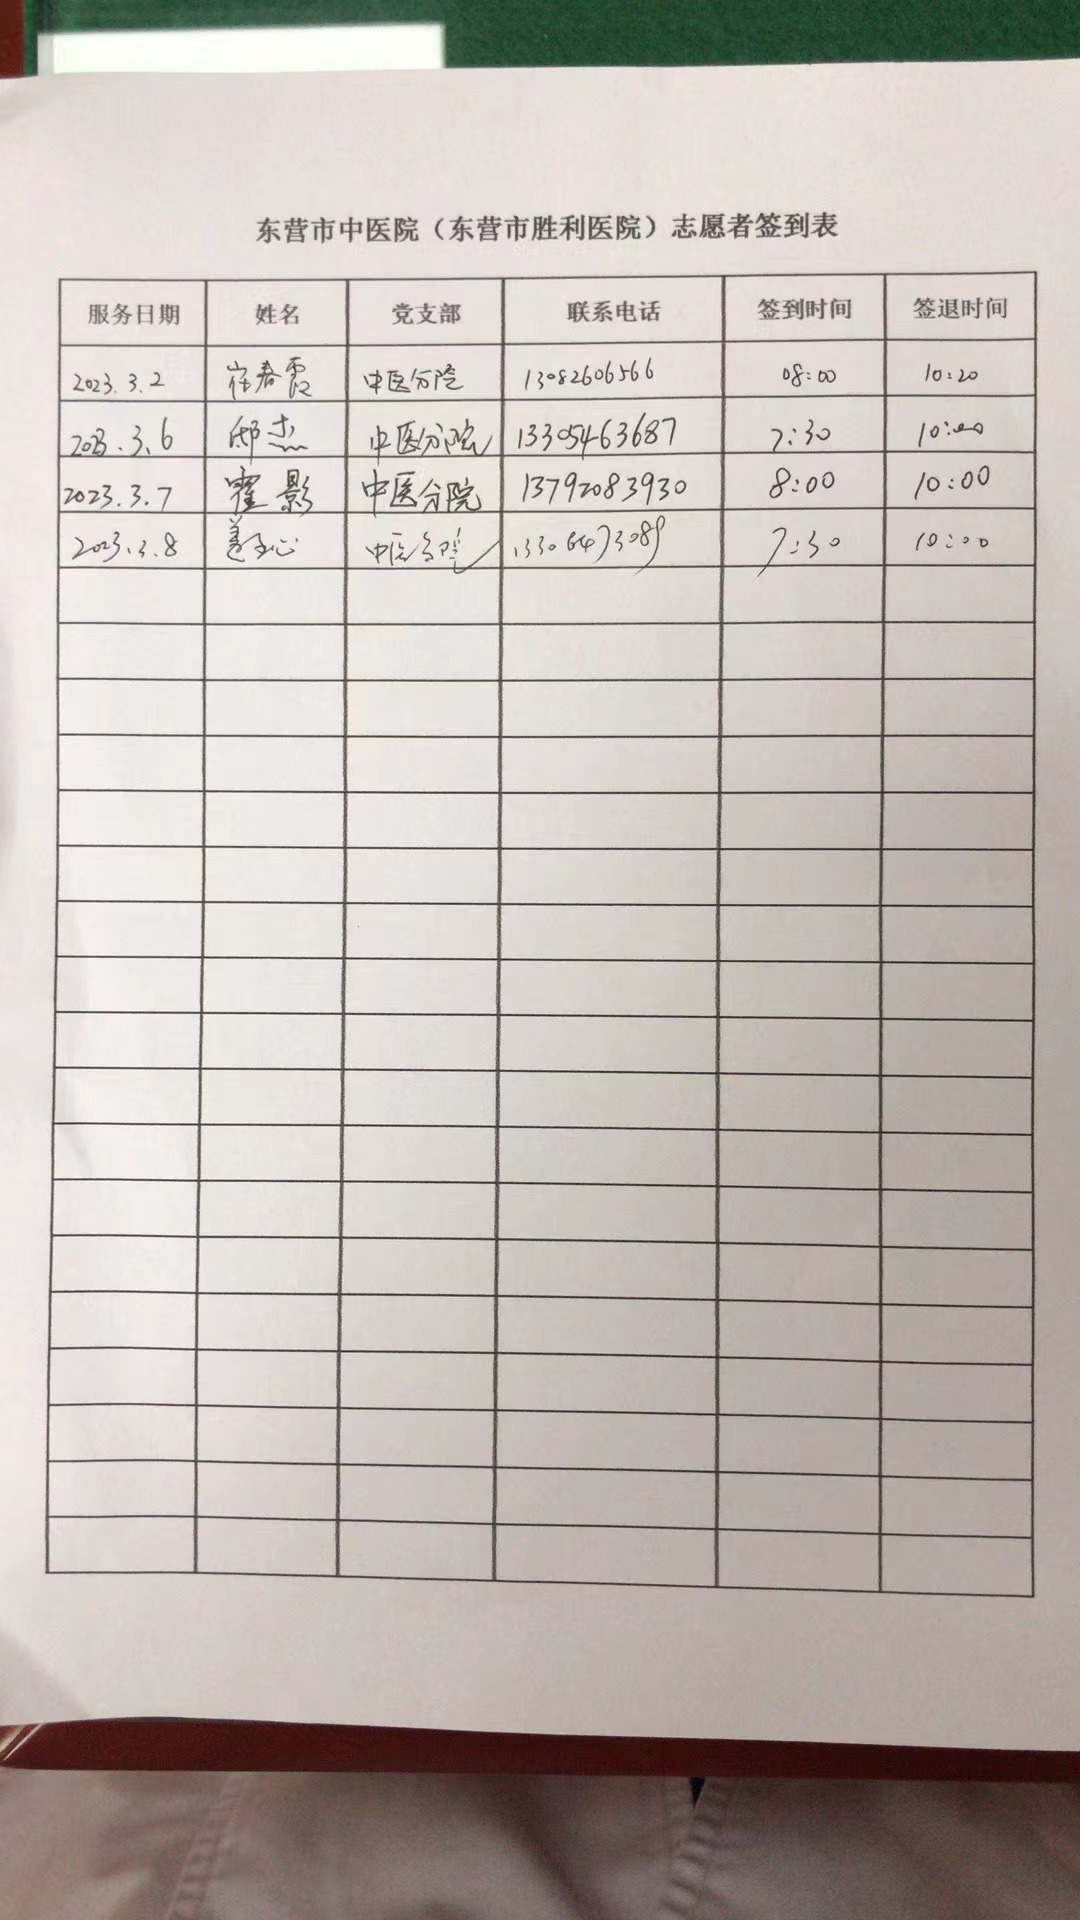 东营市中医院（东营市胜利医院）志愿者签到表
服务日期 姓名 党支部 联系电话 签到时间 签退时间
2023.3.2 崔春霞 中医分院 13082606566 08:00 10:20
2023.3.6 邴杰 中医分院 13305463687 7:30 10:00
2023.3.7 霍影 中医分院 13792083930 8:00 10:00
2023.3.8 中医分院 7:30 10:00